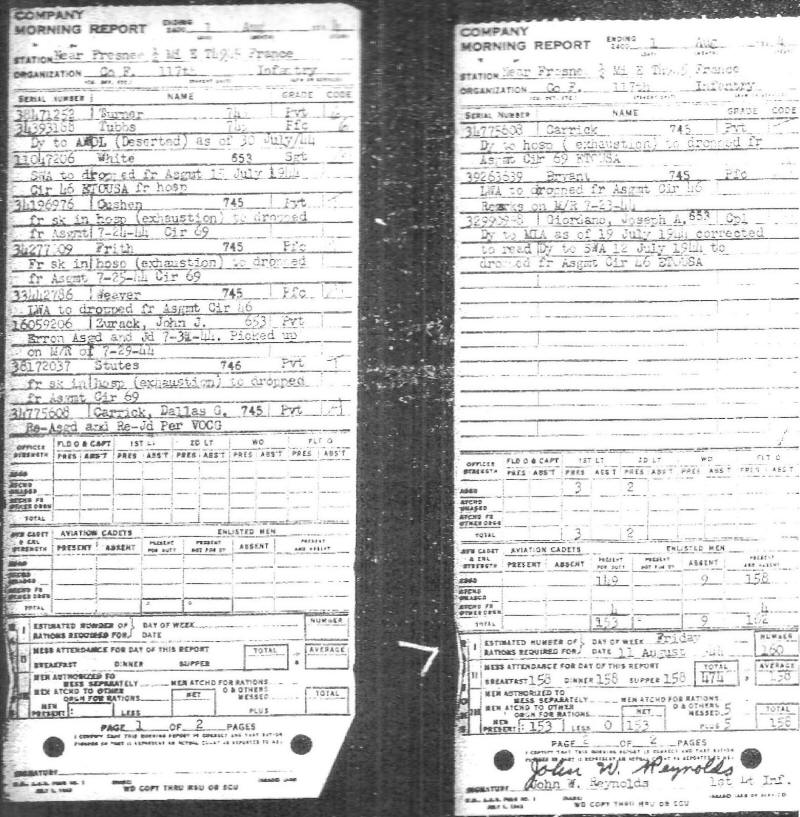 COMPANY
MORNING REPORT ENDING 2400 1 Aug
STATION Near Fresnes ½ Mi E France
ORGANIZATION Co F. 117th Infantry
SERIAL NUMBER NAME GRADE CODE
38471252 Turner 745 Pvt
34393188 Tubbs 745 Pfc
Dy to AWOL (Deserted) as of 30 July/44
11047206 White 653 Sgt
SWA to dropped fr Asgmt 15 July 1944
Cir 46 ETOUSA fr hosp
34196976 Cushen 745 Pvt
fr sk in hosp (exhaustion) to dropped
fr Asgmt 7-24-44 Cir 69
Frith 745 Pfc
Fr sk in hosp (exhaustion) to dropped
fr Asgmt 7-25-44 Cir 69
33442786 Weaver 745 Pfc
LWA to dropped fr Asgmt Cir 46
16059206 Zurack, John J. 653 Pvt
Erron Asgd and Jd Picked up
on M/R of 7-29-44
38172037 Stutes 746 Pvt
fr sk in hosp (exhaustion) to dropped
fr Asgmt Cir 69
34775608 Carrick, Dallas G. 745 Pvt
Re-Asgd and Re-Jd Per VOCG
OFFICER STRENGTH FLD O & CAPT 1ST LT 2D LT WO FLT O
PRES ABS'T PRES ABS'T PRES ABS'T PRES ABS'T PRES ABS'T
ASGD
ATCHD UNASGD
ATCHD FR OTHER ORGN
TOTAL
AVN CADET & ENL STRENGTH AVIATION CADETS ENLISTED MEN
PRESENT ABSENT PRESENT FOR DUTY PRESENT NOT FOR DY ABSENT PRESENT AND ABSENT
ASGD
ATCHD UNASGD
ATCHD FR OTHER ORGN
TOTAL
ESTIMATED NUMBER OF RATIONS REQUIRED FOR DAY OF WEEK DATE NUMBER
MESS ATTENDANCE FOR DAY OF THIS REPORT TOTAL AVERAGE
BREAKFAST DINNER SUPPER
MEN AUTHORIZED TO MESS SEPARATELY MEN ATCHD FOR RATIONS
MEN ATCHD TO OTHER ORGN FOR RATIONS NET O & OTHERS MESSED TOTAL
MEN PRESENT: LESS PLUS
PAGE 1 OF 2 PAGES
I CERTIFY THAT THIS MORNING REPORT IS CORRECT AND THAT RATION
FIGURES OR PART IS REPRESENT AN ACTUAL COUNT AS REPORTED TO ME:
SIGNATURE
WD COPY THRU MRU OR SCU
COMPANY
MORNING REPORT ENDING 2400 1 Aug 4
STATION Near Fresnes ½ Mi E France
ORGANIZATION Co F. 117th Infantry
SERIAL NUMBER NAME GRADE CODE
34775608 Carrick 745 Pvt
Dy to hosp (exhaustion) to dropped fr
Asgmt Cir 69 ETOUSA
39263539 Bryant 745 Pfc
LWA to dropped fr Asgmt Cir 46
Remarks on M/R 7-23-44
Giordano, Joseph A, 653 Cpl
Dy to MIA as of 19 July 1944 corrected
to read Dy to SWA 12 July 1944 to
dropped fr Asgmt Cir 46 ETOUSA
OFFICER STRENGTH FLD O & CAPT 1ST LT 2D LT WO FLT O
PRES ABS'T PRES ABS'T PRES ABS'T PRES ABS'T PRES ABS'T
ASGD 3 2
ATCHD UNASGD
ATCHD FR OTHER ORGN
TOTAL 3 2
AVN CADET & ENL STRENGTH AVIATION CADETS ENLISTED MEN
PRESENT ABSENT PRESENT FOR DUTY PRESENT NOT FOR DY ABSENT PRESENT AND ABSENT
ASGD 149 9 158
ATCHD UNASGD
ATCHD FR OTHER ORGN 4 4
TOTAL 153 9 162
ESTIMATED NUMBER OF RATIONS REQUIRED FOR DAY OF WEEK Friday DATE 11 August NUMBER 160
MESS ATTENDANCE FOR DAY OF THIS REPORT TOTAL AVERAGE
BREAKFAST 158 DINNER 158 SUPPER 158 474 158
MEN AUTHORIZED TO MESS SEPARATELY MEN ATCHD FOR RATIONS
MEN ATCHD TO OTHER ORGN FOR RATIONS NET O & OTHERS MESSED 5 TOTAL
MEN PRESENT: 153 LESS 0 153 PLUS 5 158
PAGE 2 OF 2 PAGES
I CERTIFY THAT THIS MORNING REPORT IS CORRECT AND THAT RATION
FIGURES OR PART IS REPRESENT AN ACTUAL COUNT AS REPORTED TO ME:
John W. Reynolds
SIGNATURE John W. Reynolds 1st Lt Inf.
WD COPY THRU MRU OR SCU